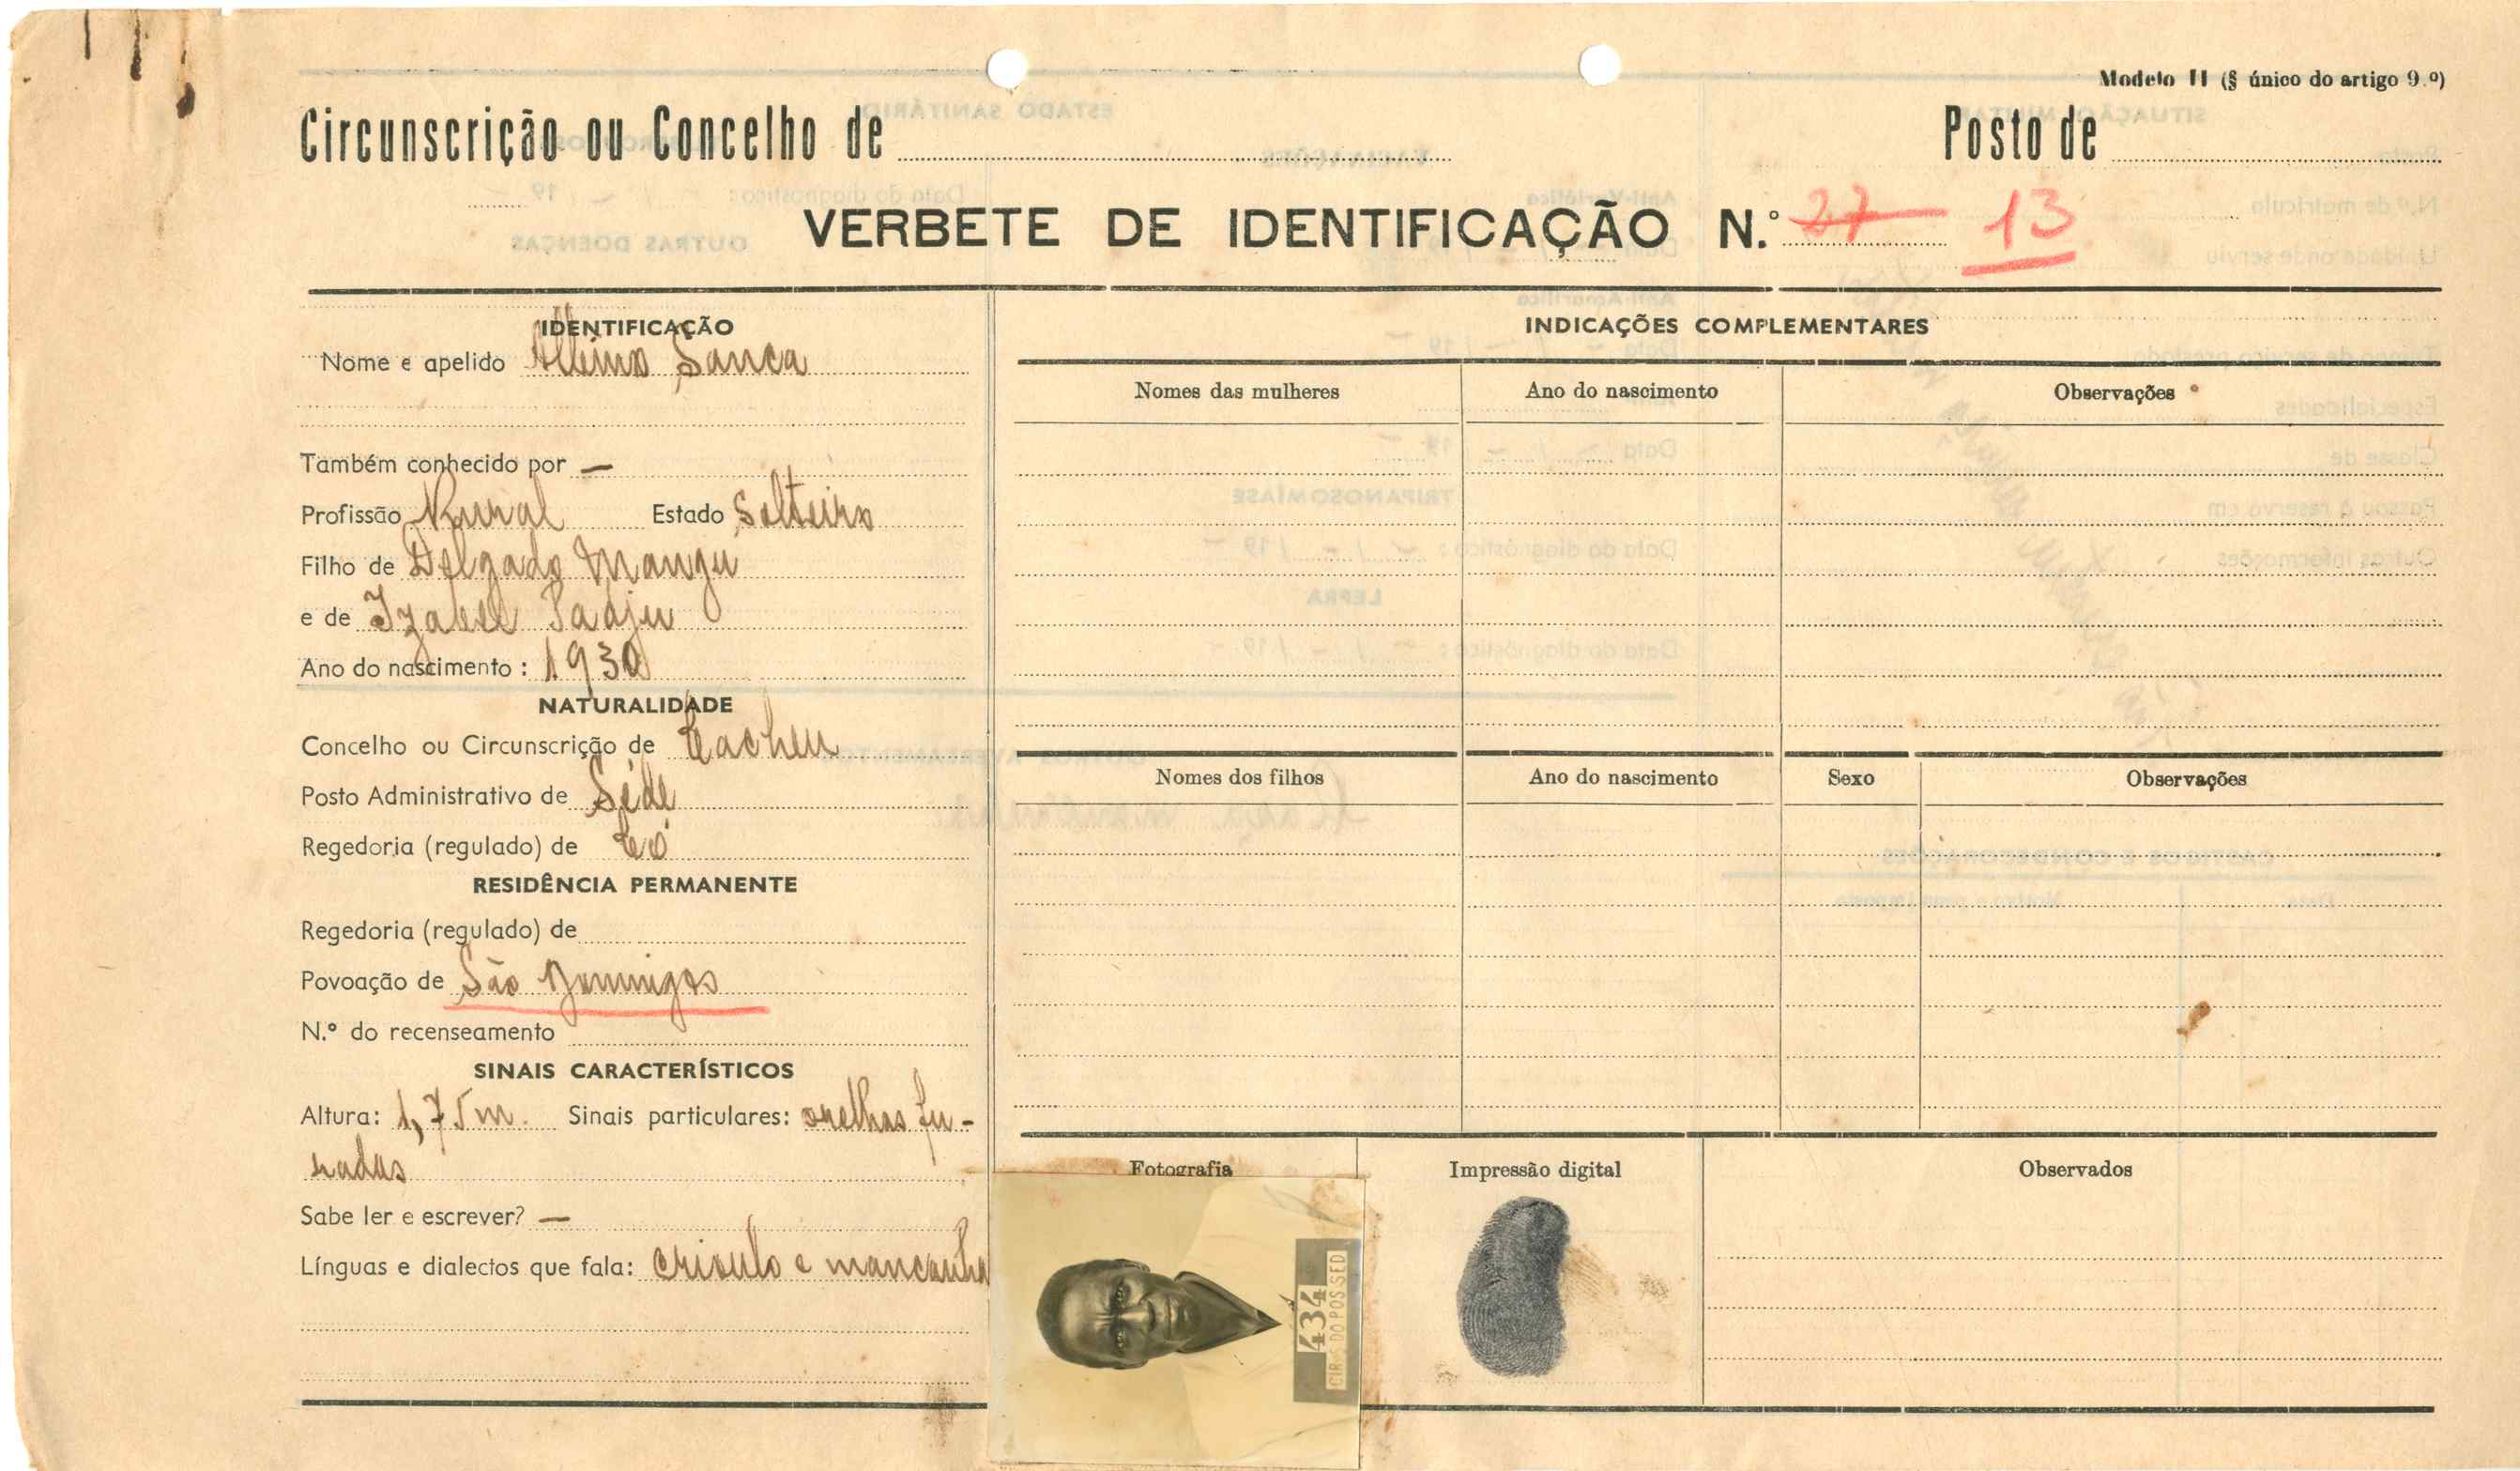 Modelo II (§ único do artigo 9.º)
Circunscrição ou Concelho de
Posto de
VERBETE DE IDENTIFICAÇÃO N.º 27 13
IDENTIFICAÇÃO
Nome e apelido Sanca
Também conhecido por —
Profissão Rural Estado Solteiro
Filho de Delgado Mangu
e de Izabel Padju
Ano do nascimento : 1930
NATURALIDADE
Concelho ou Circunscrição de Cacheu
Posto Administrativo de Séde
Regedoria (regulado) de Có
RESIDÊNCIA PERMANENTE
Regedoria (regulado) de
Povoação de São Domingos
N.º do recenseamento
SINAIS CARACTERÍSTICOS
Altura: 1,75 m. Sinais particulares: orelhas fu-
radas
Sabe ler e escrever? —
Línguas e dialectos que fala: crioulo e mancanha
INDICAÇÕES COMPLEMENTARES
Nomes das mulheres Ano do nascimento Observações
Nomes dos filhos Ano do nascimento Sexo Observações
Fotografia Impressão digital Observados
434